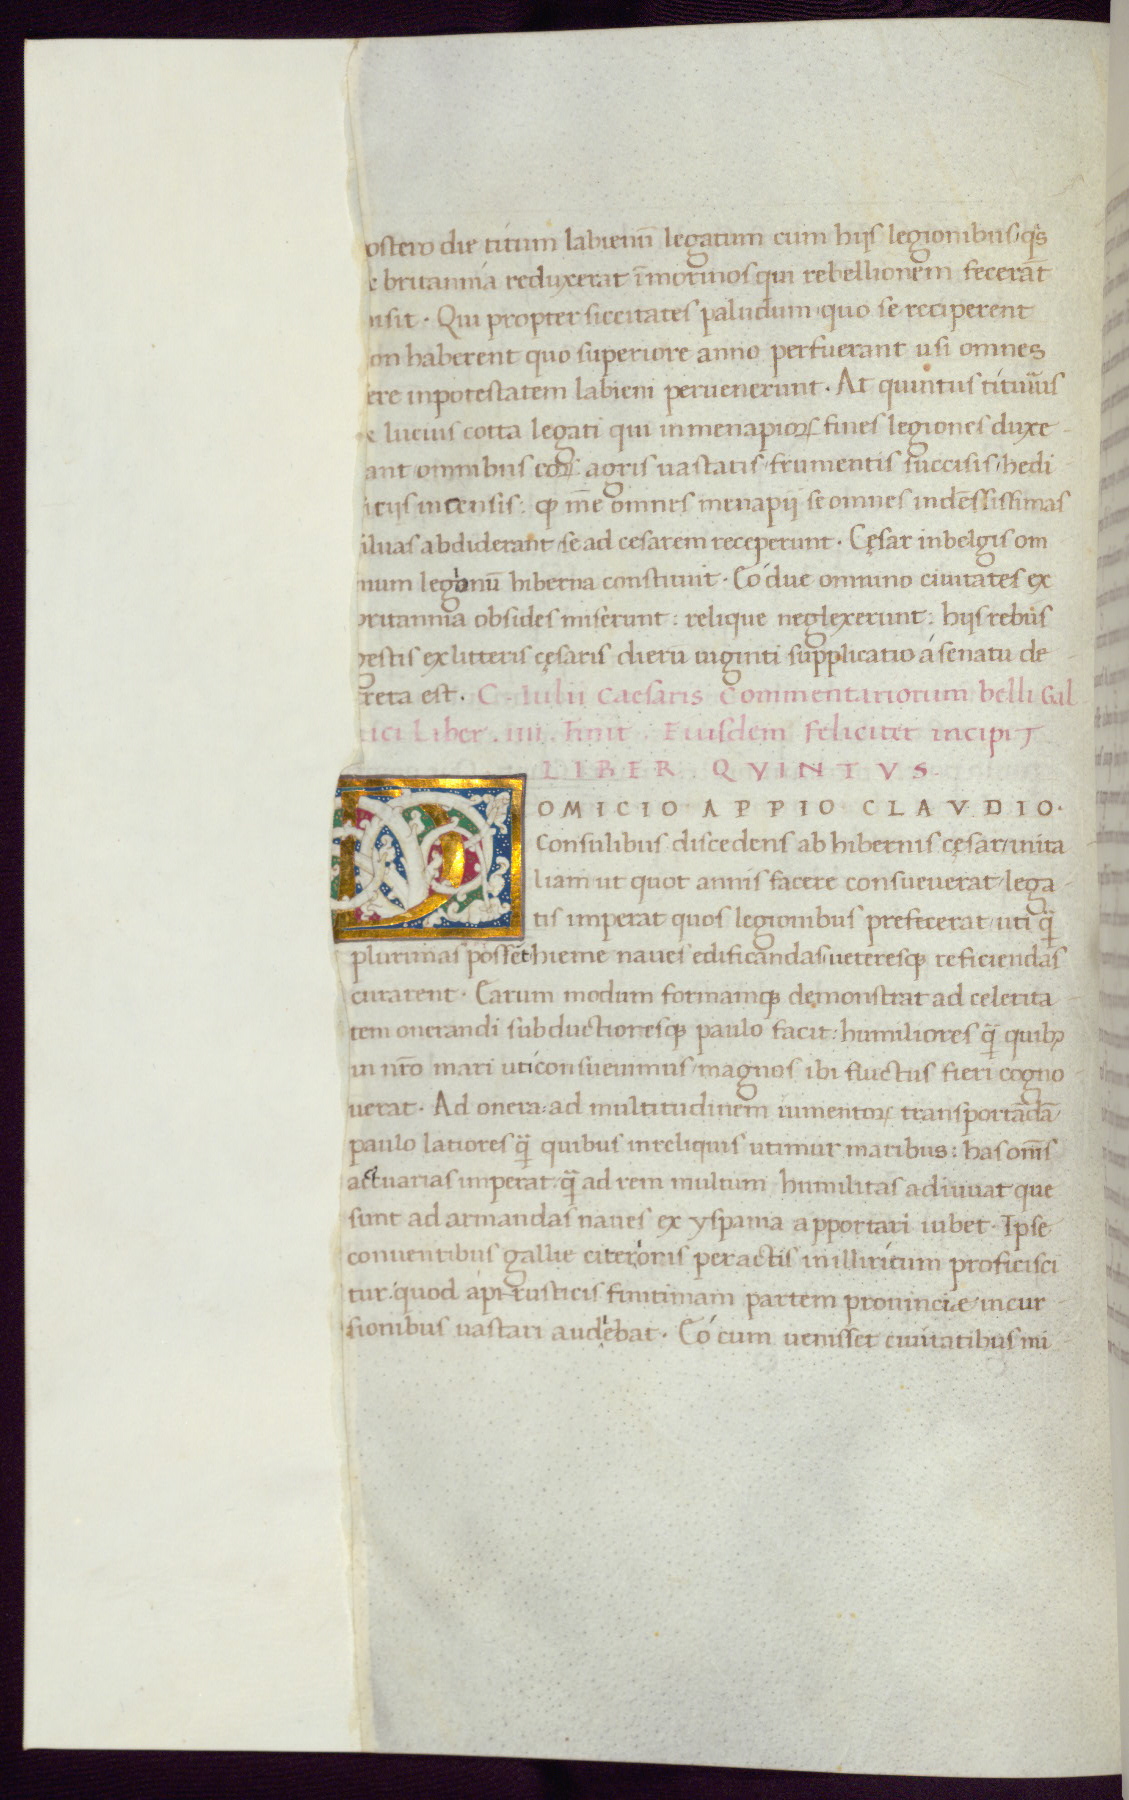 ostero die titum labienū legatum cum hijs legionibus qs̄
e britannia reduxerat īmorinos qui rebellionem fecerāt
isit · Qui propter siccitates paludum quo se reciperent
on haberent quo superiore anno perfuerant usi omnes
ere inpotestatem labieni peruenerunt · At quintus titurius
& lucius cotta legati qui inmenapioꝝ fines legiones duxe
ant omnibus eoꝝ agris uastatis frumentis succisis hedi
icijs incensis : ꝙ īme omnes menapij se omnes indēssissimas
iluas abdiderant se ad cesarem receperunt · Cęsar inbelgis om
nium legionū hiberna constituit · Eó due omnino ciuitates ex
britannia obsides miserunt : relique neglexerunt : hijs rebus
gestis ex litteris cęsaris dierū uiginti supplicatio á senatu de
reta est · C · Iulii Caesaris Commentariorum belli Gal
ici Liber . iiii . Finit . Eiusdem feliciter incipit
LIBER . QVINTVS .
DOMICIO APPIO CLAVDIO ·
Consulibus discedens ab hibernis cęsar inita
liam ut quot annis facere consueuerat lega
tis imperat quos legionibus prefecerat uti q̄
plurimas possēt hieme naues edificandas ueteresqꝫ reficiendas
curarent · Earum modum formamqꝫ demonstrat ad celerita
tem onerandi subductionesqꝫ paulo facit : humiliores q̄ quibꝰ
in nr̄o mari uti consueuimus magnos ibi fluctus fieri cogno
uerat · Ad onera : ad multitudinem iumentoꝝ transportādā
paulo latiores q̄ quibus in reliquis utimur maribus : has om̄s
actuarias imperat q̄ ad rem multum humilitas adiuuat que
sunt ad armandas naues ex yspania apportari iubet · Ipse
conuentibus gallie citerioris peractis in illiricum proficisci
tur : quod á pirusticis finitimam partem prouinciæ incur
sionibus uastari audiebat · Eó cum uenisset ciuitatibus mi